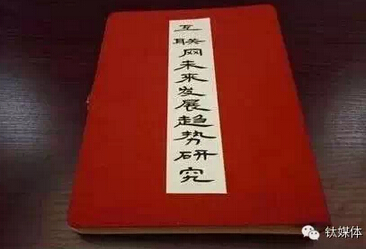 互联网未来发展趋势研究
钛媒体